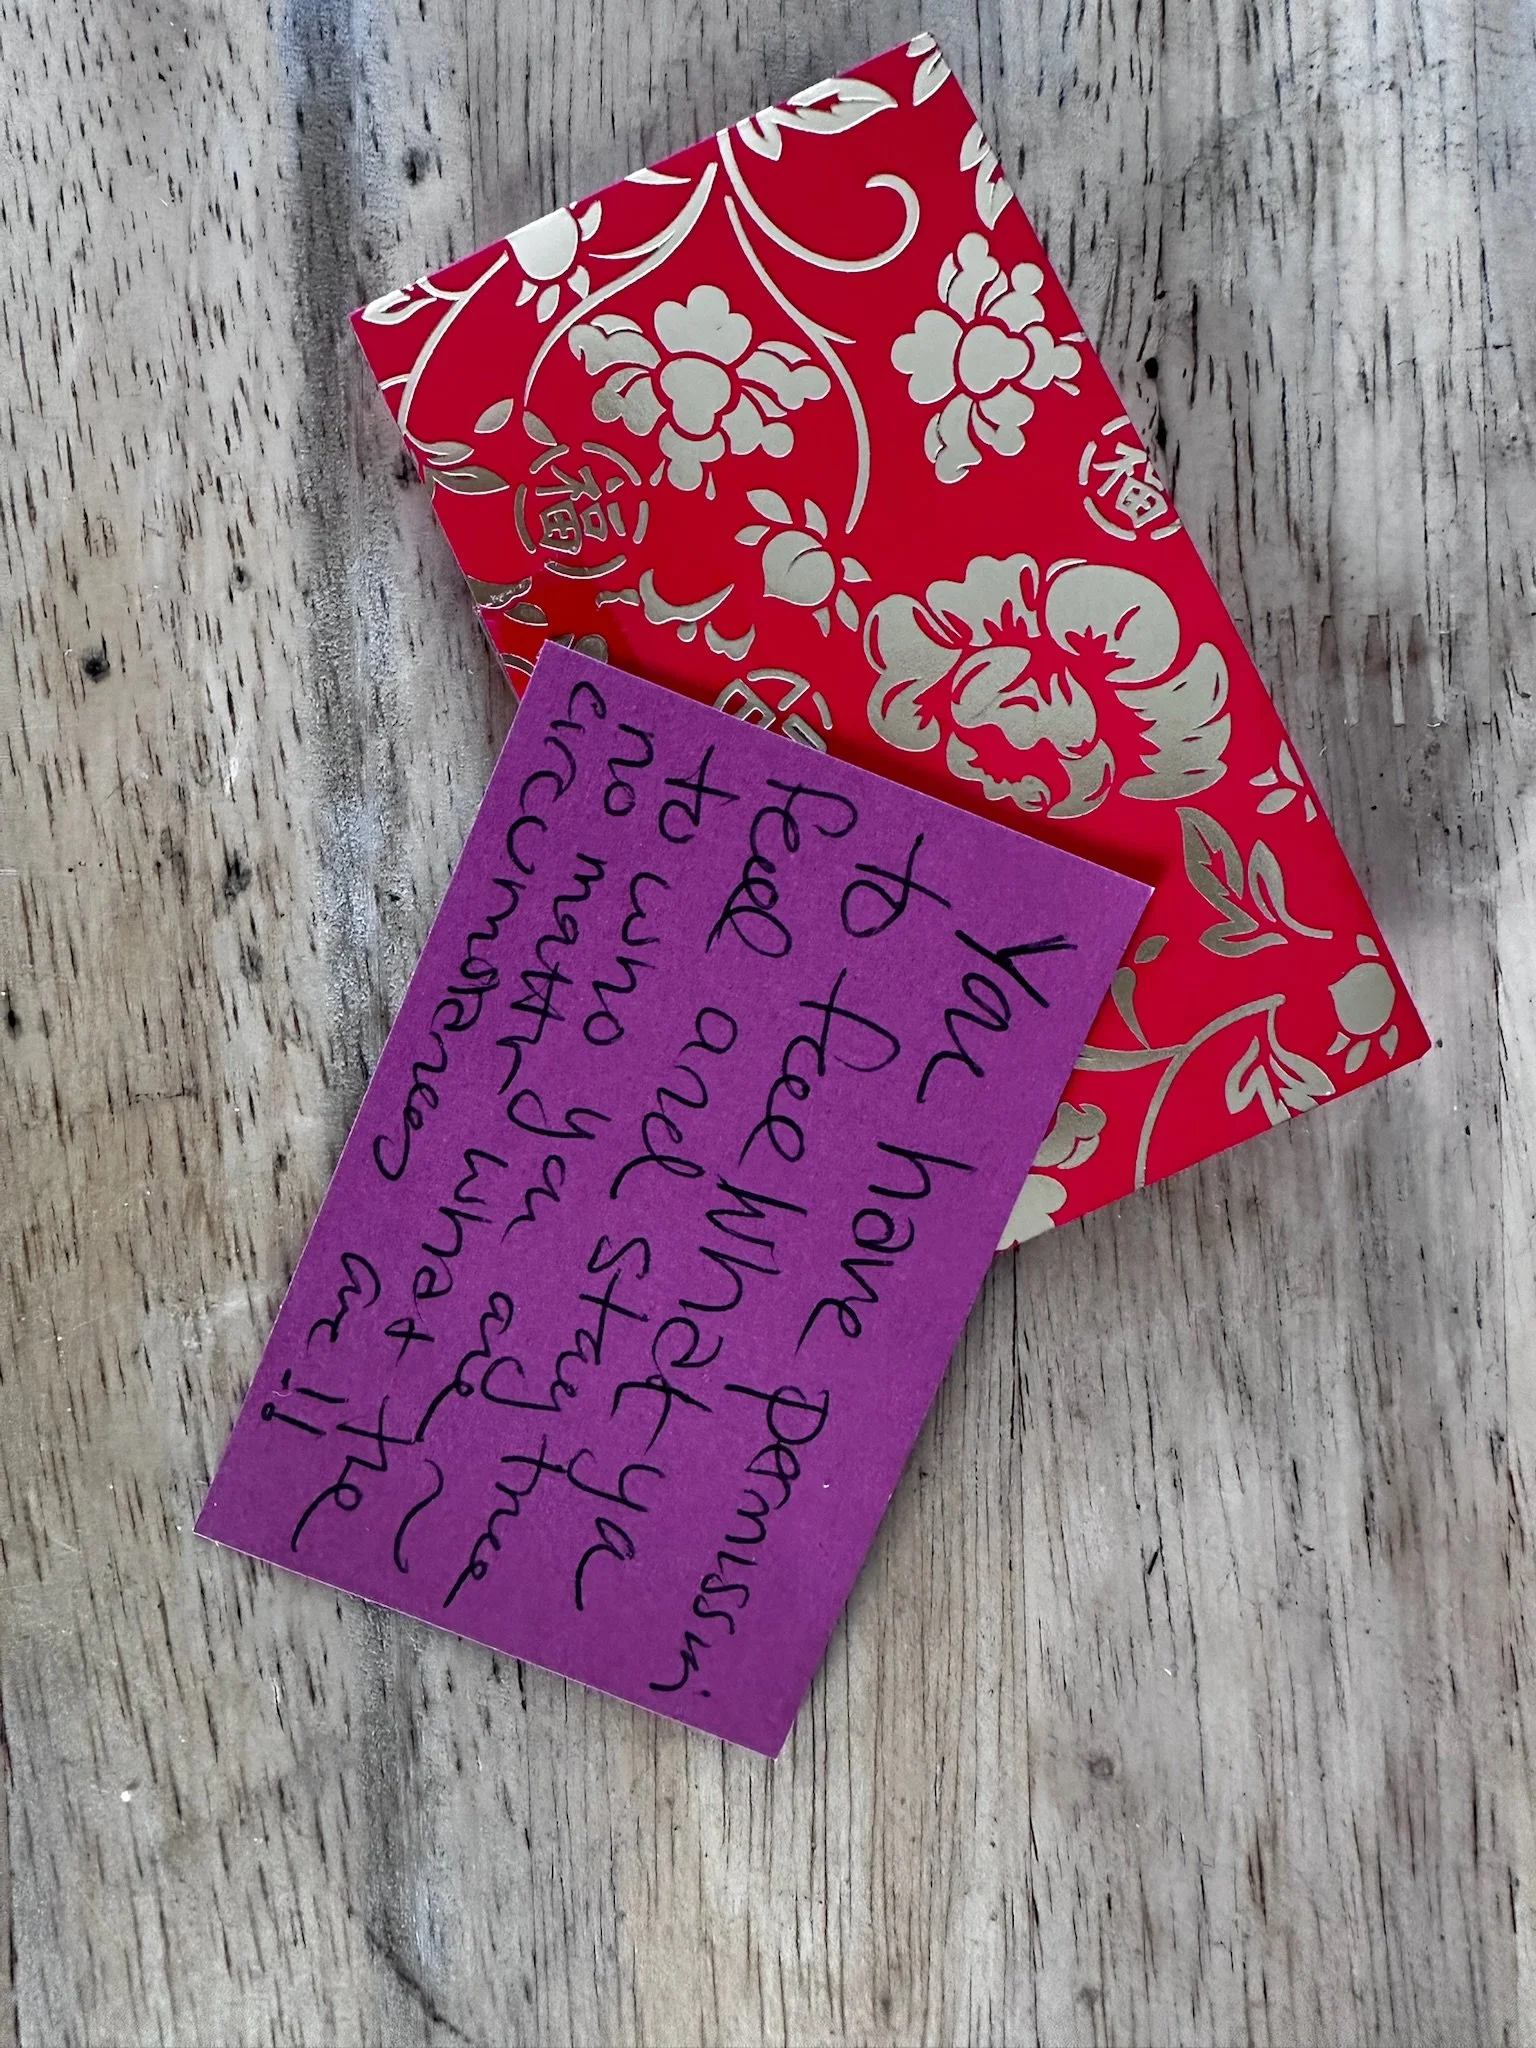 You have permissin
to feel What ya
feel and stay true
to who you are
no matter what the
circumstances are!!
福
福